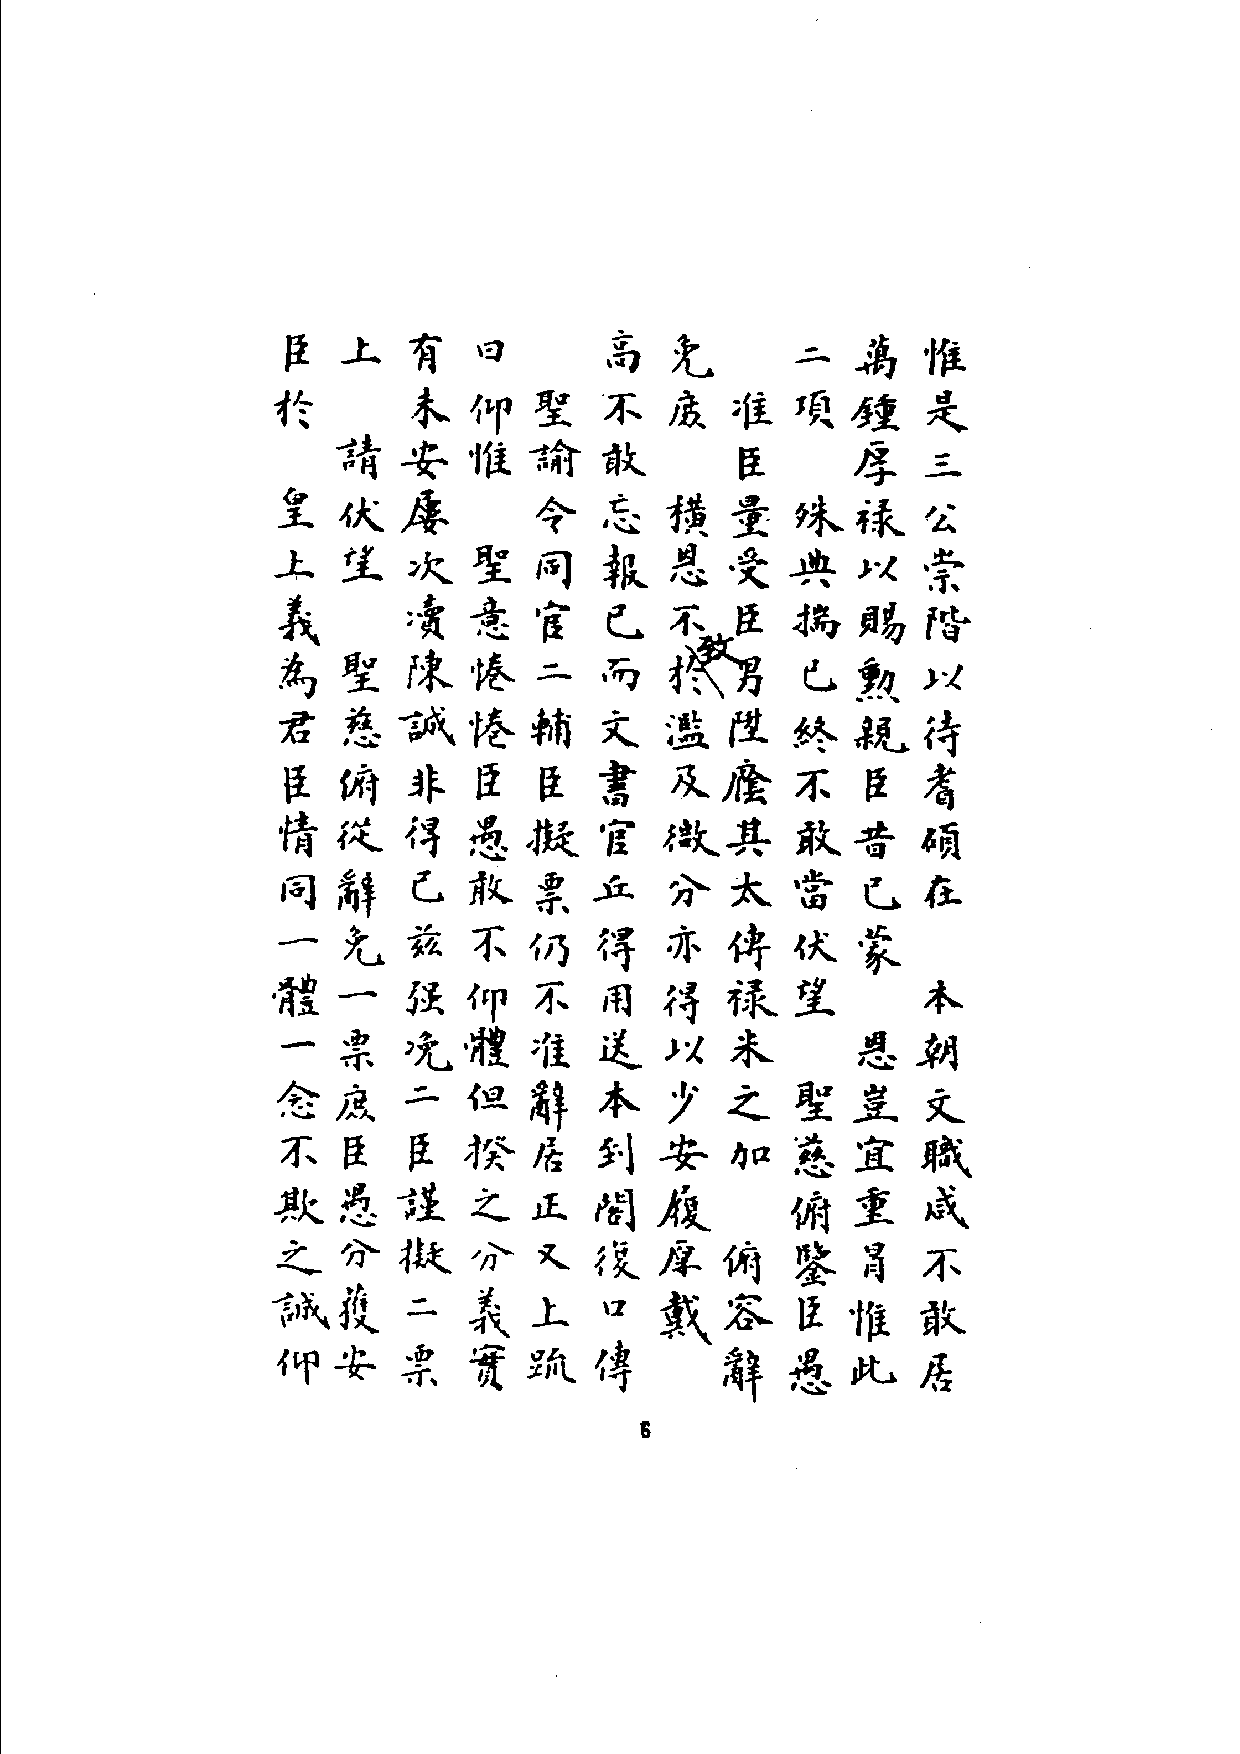 惟是三公崇階以待耆碩在　本朝文職咸不敢居
萬鍾厚祿以賜勲親臣昔已蒙　恩豈宜重冐惟此
二項　殊典揣已終不敢當伏望　聖慈俯鑒臣愚
准臣量受臣男陞廕其太傅祿米之加　俯容辭
免庻　橫恩不致濫及微分亦得以少安履厚戴
高不敢忘報已而文書官丘得用送本到閣復口傳
聖諭令同官二輔臣擬票仍不准辭居正又上疏
曰仰惟　聖意惓惓臣愚敢不仰體但揆之分義實
有未安屢次瀆陳誠非得已兹强浼二臣謹擬二票
上　請伏望　聖慈俯從辭免一票庶臣愚分獲安
臣於　皇上義為君臣情同一體一念不欺之誠仰
6